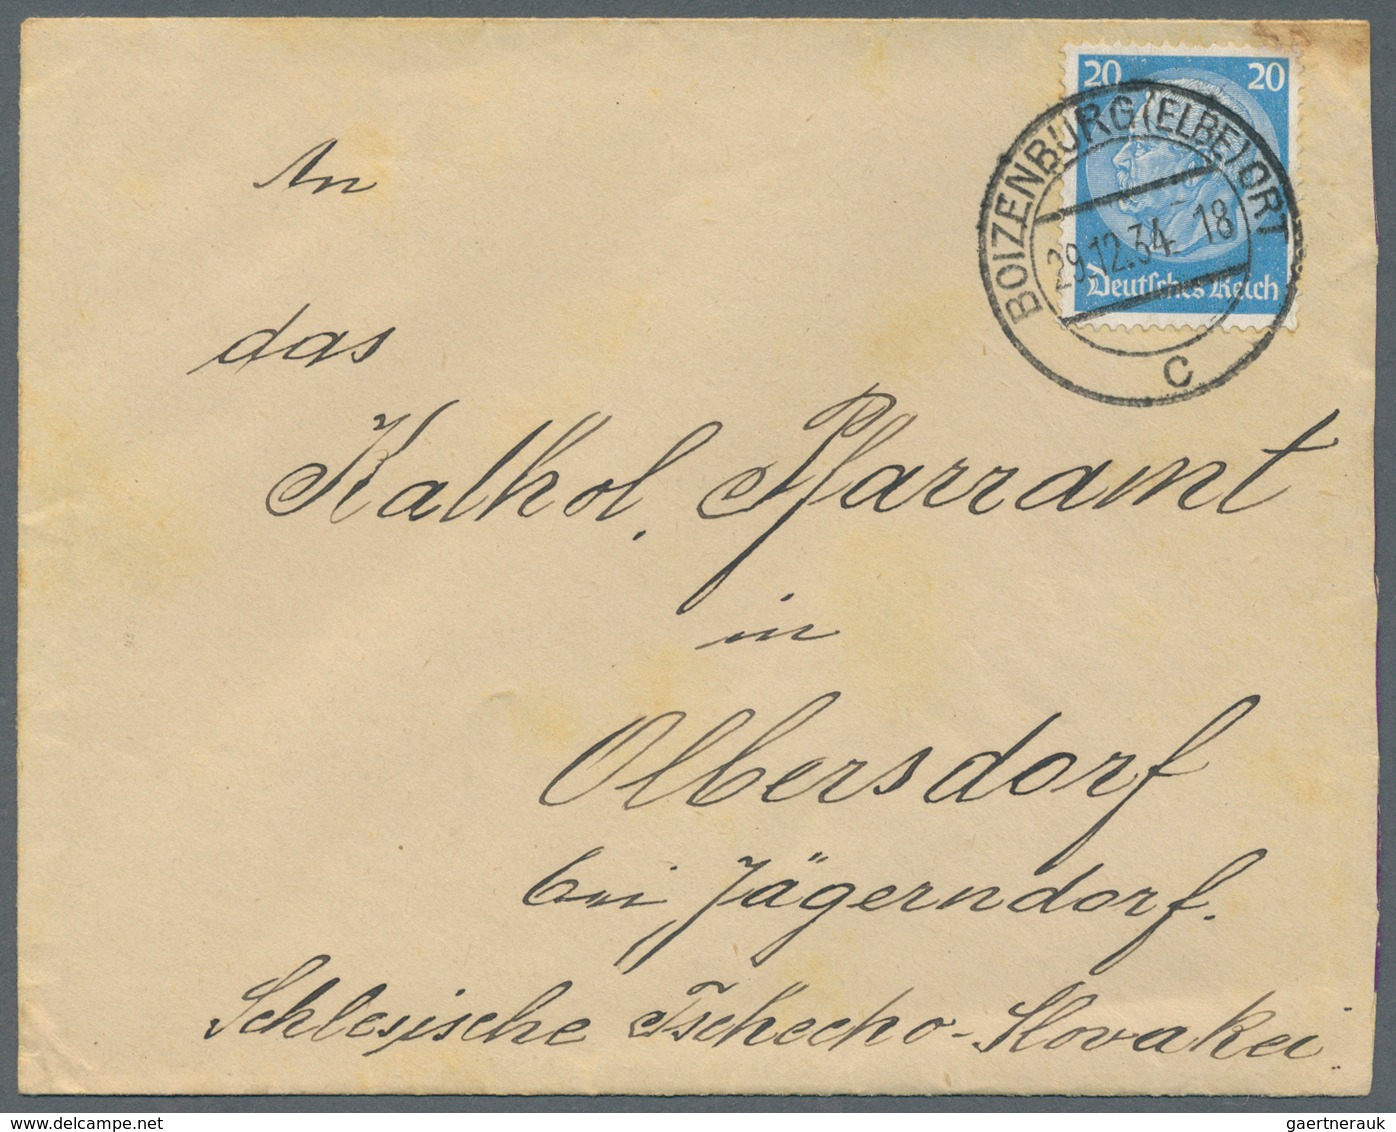 20 20
BOIZENBURG (ELBE) ORT
29.12.34. 18
Deutsches Reich
c
An
das
Kathol. Pfarramt
in
Olbersdorf
bei Jägerndorf.
Schlesische Tschecho-Slovakei
gaertnerauk